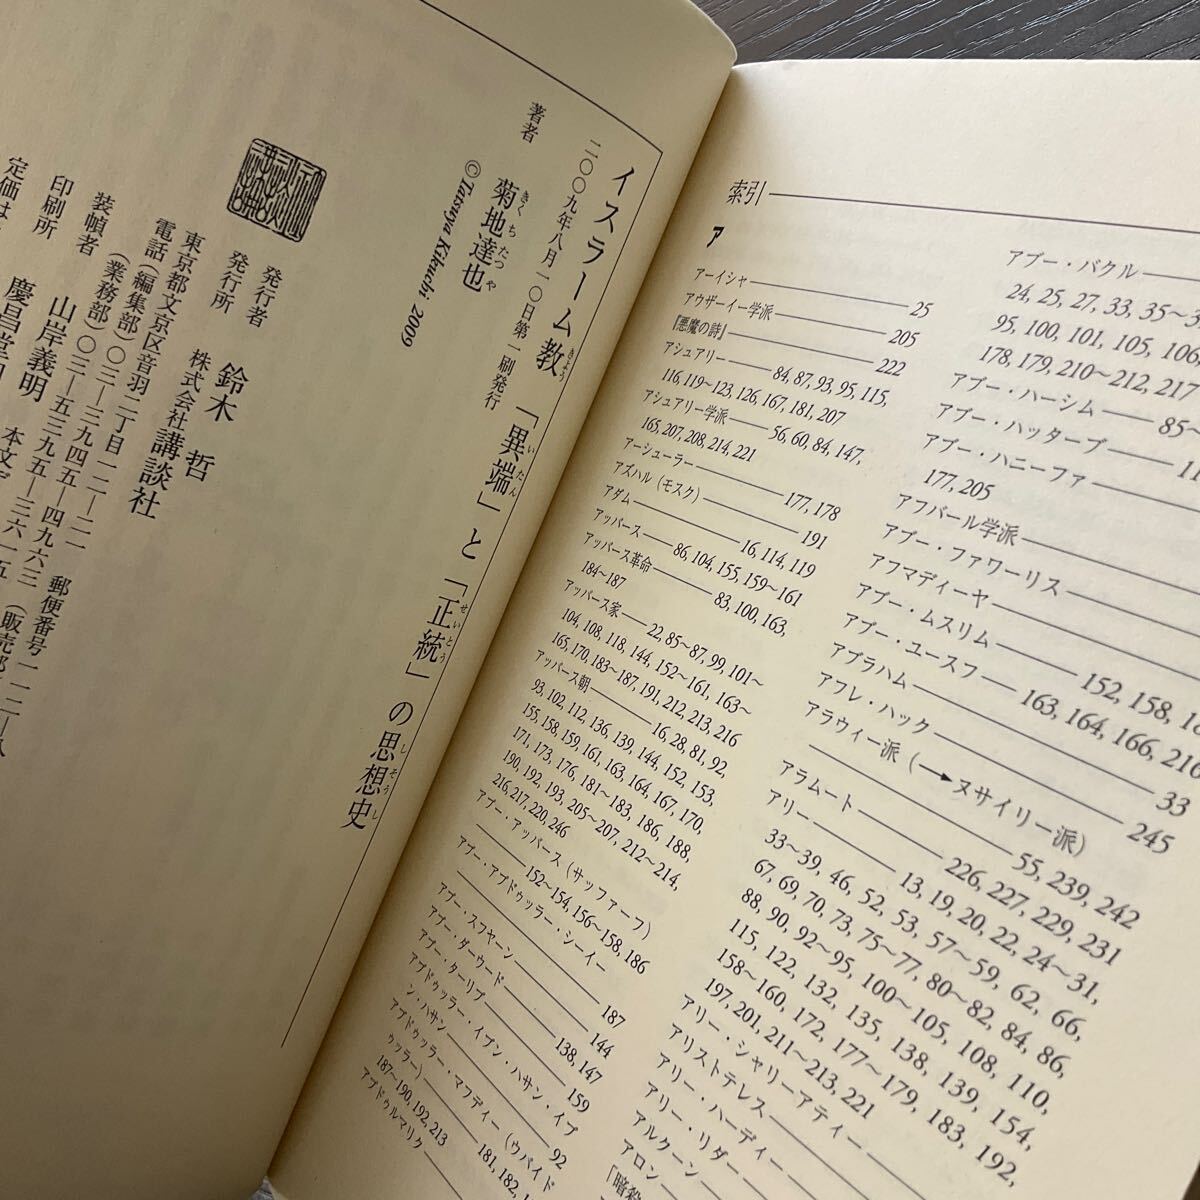 イスラーム教「異端」と「正統」の思想史
二〇〇九年八月一〇日第一刷発行
著者 菊地達也
©Tatsuya Kikuchi 2009
発行者 鈴木 哲
発行所 株式会社講談社
東京都文京区音羽二丁目一二―二一
電話(編集部)〇三―三九四五―四九六三 (販売部)
(業務部)〇三―五三九五―三六一五
装幀者 山岸義明
印刷所
定価は
索引
ア
アーイシャ 25
アウザーイー学派 205
『悪魔の詩』 222
アシュアリー 84, 87, 93, 95, 115,
116, 119~123, 126, 167, 181, 207
アシュアリー学派 56, 60, 84, 147,
165, 207, 208, 214, 221
アーシューラー 177, 178
アズハル(モスク) 191
アダム 16, 114, 119
アッバース 86, 104, 155, 159~161
アッバース革命 83, 100, 163,
184~187
アッバース家 22, 85~87, 99, 101~
104, 108, 118, 144, 152~161, 163~
165, 170, 183~187, 191, 212, 213, 216
アッバース朝 16, 28, 81, 92,
93, 102, 112, 136, 139, 144, 152, 153,
155, 158, 159, 161, 163, 164, 167, 170,
171, 173, 176, 181~183, 186, 188,
190, 192, 193, 205~207, 212~214,
216, 217, 220, 246
アブー・アッバース(サッファーフ)
152~154, 156~158, 186
アブー・アブドゥッラー・シーイー
187
アブー・スフヤーン 144
アブー・ダーウード
アブー・ターリブ 138, 147
アブドゥッラー・イブン・ハサン・イブ
ン・ハサン 159
アブドゥッラー・マフディー(ウバイド
ゥッラー) 92
187~190, 192, 213
アブドゥルマリク 181, 182,
アブー・バクル
24, 25, 27, 33, 35~
95, 100, 101, 105, 106,
178, 179, 210~212, 217
アブー・ハーシム 85~
アブー・ハッターブ
アブー・ハニーファ
177, 205
アフバール学派
アブー・ファワーリス
アフマディーヤ
アブー・ムスリム 152, 158,
アブー・ユースフ
アブラハム 163, 164, 166, 216
アフレ・ハック 33
アラウィー派(→ヌサイリー派) 245
55, 239, 242
アラムート 226, 227, 229, 231
アリー 13, 19, 20, 22, 24~31,
33~39, 46, 52, 53, 57~59, 62, 66,
67, 69, 70, 73, 75~77, 80~82, 84, 86,
88, 90, 92~95, 100~105, 108, 110,
115, 122, 132, 135, 138, 139, 154,
158~160, 172, 177~179, 183, 192,
197, 201, 211~213, 221
アリー・シャリーアティー
アリストテレス
アリー・ハーディー
アリー・リダー
アルクーン
アロン